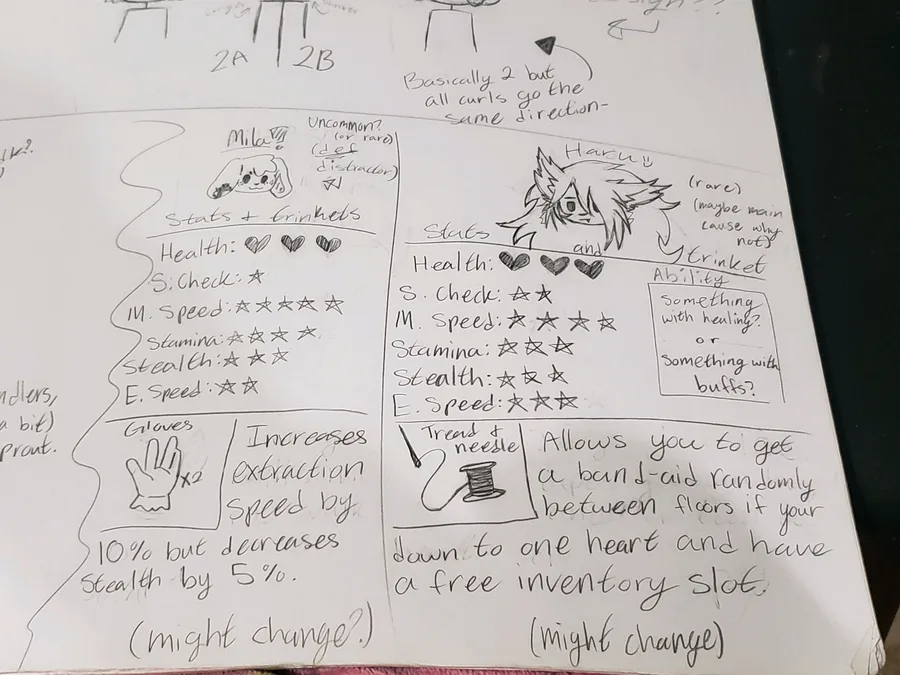 2A 2B
Basically 2 but
all curls go the
same direction-
Mila
Uncommon?
(or rare)
(def
distractor)
Stats + trinkets
Health:
S. Check: ☆
M. Speed: ☆☆☆☆☆
Stamina: ☆☆☆☆
Stealth: ☆☆☆
E. Speed: ☆☆
Gloves
x2
Increases
extraction
speed by
10% but decreases
stealth by 5%.
(might change?)
Haru
(rare)
(maybe main
cause why
not)
Stats
and
trinket
Health:
S. Check: ☆☆
M. Speed: ☆☆☆☆
Stamina: ☆☆☆
Stealth: ☆☆☆
E. Speed: ☆☆☆
Ability
Something
with healing?
or
Something with
buffs?
Tread &
needle
Allows you to get
a band-aid randomly
between floors if your
down to one heart and have
a free inventory slot.
(might change)
ndlers,
a bit)
prout.